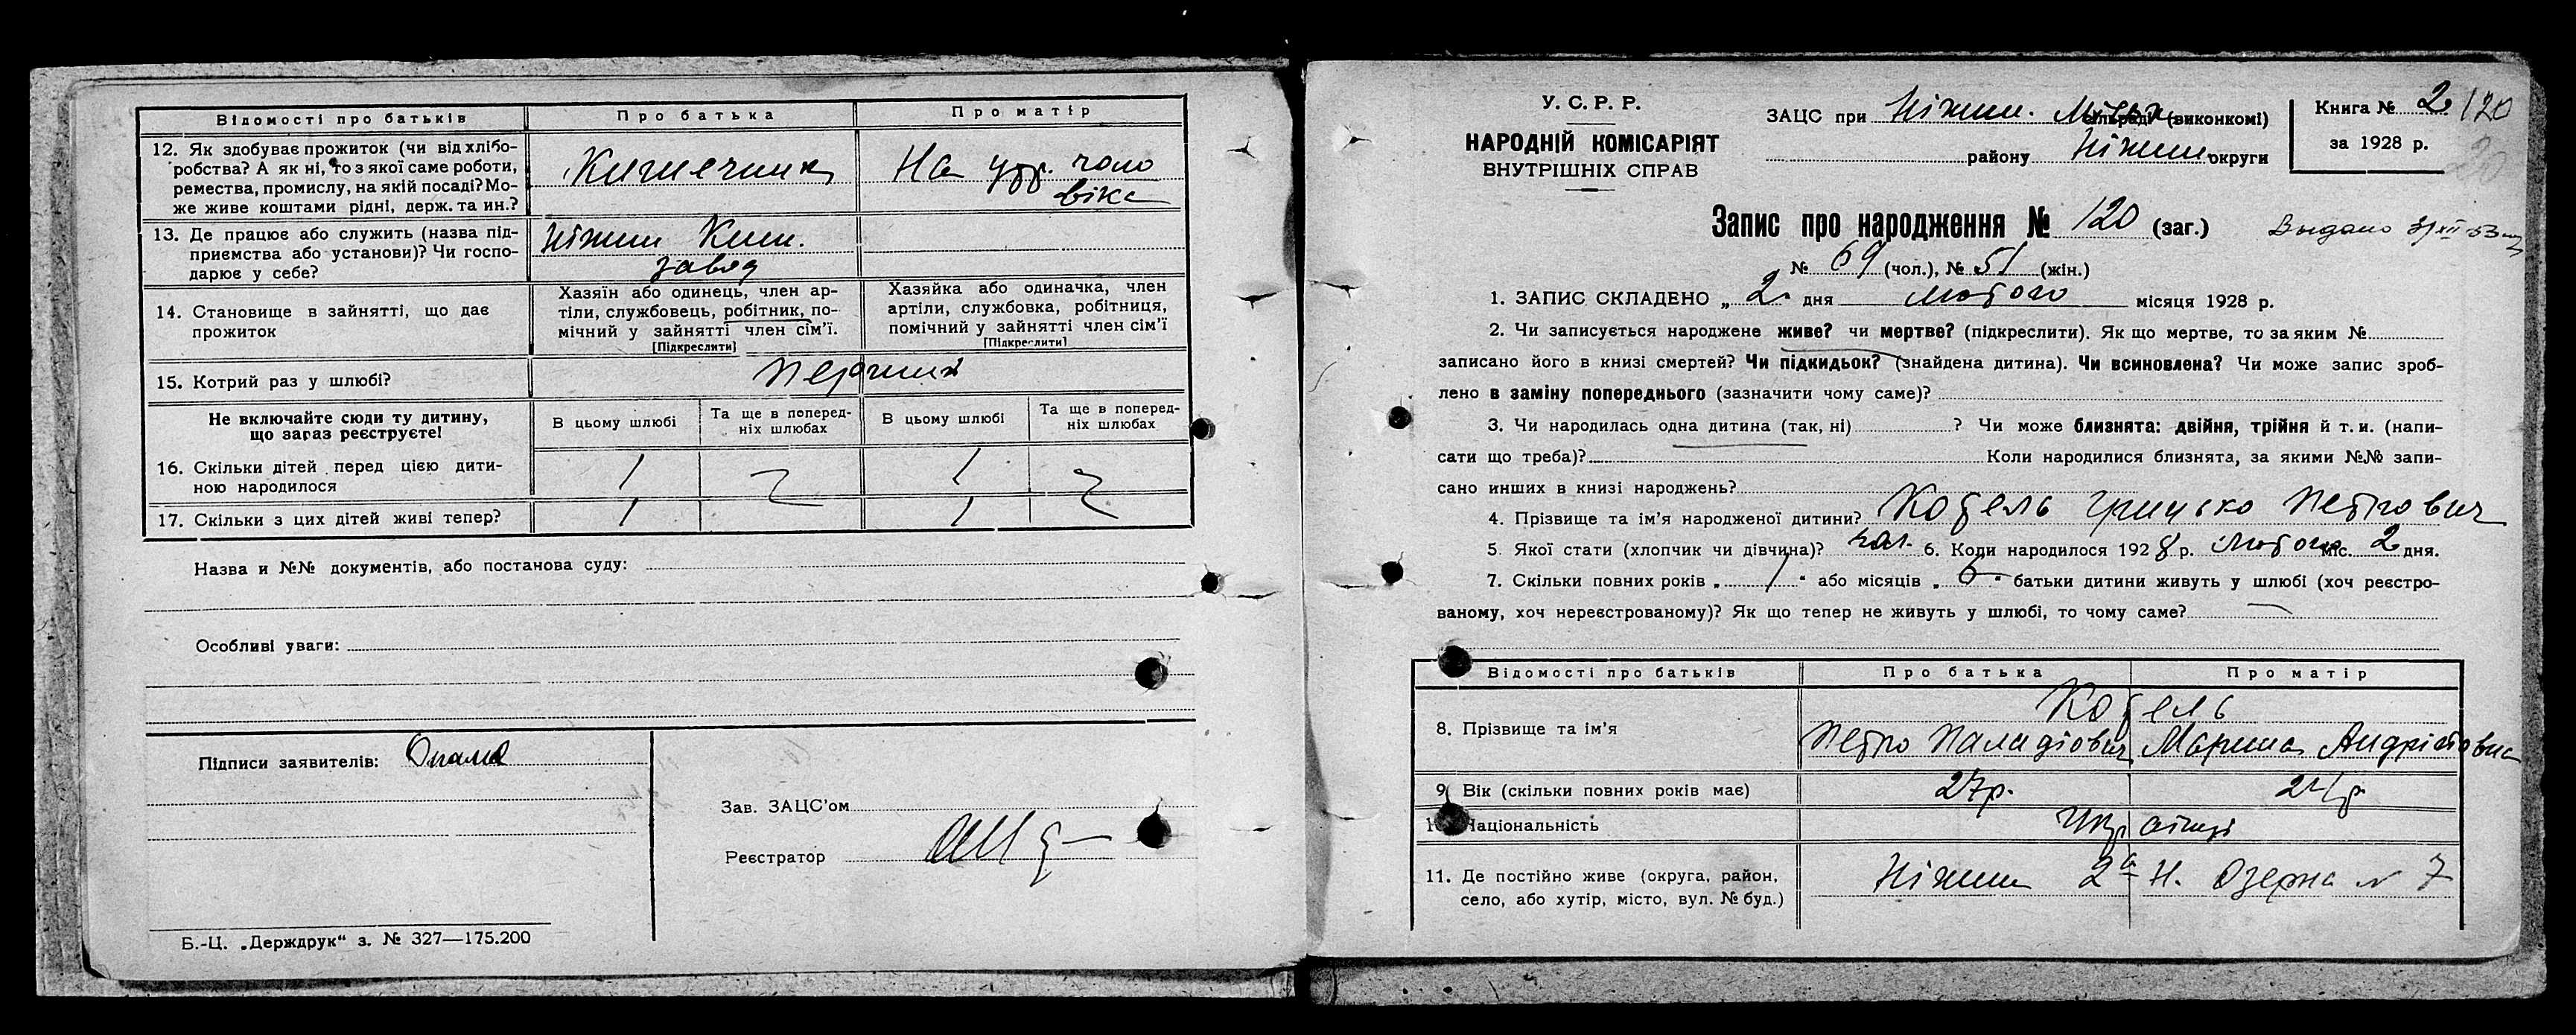 Відомості про батьків
Про батька
Про матір
12. Як здобуває прожиток (чи від хлібо-
робства? А як ні, то з якої саме роботи,
ремества, промислу, на якій посаді? Мо-
же живе коштами рідні, держ. та ин.?
Кишечник
На утр. чоло
віка
13. Де працює або служить (назва під-
приємства або установи)? Чи госпо-
дарює у себе?
Ніжин Киш.
завод
14. Становище в зайнятті, що дає
прожиток
Хазяїн або одинець, член ар-
тіли, службовець, робітник, по-
мічний у зайнятті член сім'ї.
[Підкреслити]
Хазяйка або одиначка, член
артіли, службовка, робітниця,
помічний у зайнятті член сім'ї
[Підкреслити]
15. Котрий раз у шлюбі?
Перший
Не включайте сюди ту дитину,
що зараз реєструєте!
В цьому шлюбі
Та ще в поперед-
ніх шлюбах
В цьому шлюбі
Та ще в поперед-
ніх шлюбах
16. Скільки дітей перед цією дити-
ною народилося
1
1
17. Скільки з цих дітей живі тепер?
1
1
Назва и №№ документів, або постанова суду:
Особливі уваги:
Підписи заявителів:
Зав. ЗАЦС'ом
Реєстратор
Б.-Ц. „Держдрук“ з. № 327—175.200
У. С. Р. Р.
НАРОДНІЙ КОМІСАРІЯТ
ВНУТРІШНІХ СПРАВ
ЗАЦС при Ніжин. (виконкомі)
району Ніжин округи
Книга № 2. 120
за 1928 р.
20
Запис про народження № 120 (заг.)
Выдано 31/XII 53
№ 69 (чол.), № 51 (жін.)
1. ЗАПИС СКЛАДЕНО „ 2. дня лютого місяця 1928 р.
2. Чи записується народжене живе? чи мертве? (підкреслити). Як що мертве, то за яким №
записано його в книзі смертей? Чи підкидьок? (знайдена дитина). Чи всиновлена? Чи може запис зроб-
лено в заміну попереднього (зазначити чому саме)?
3. Чи народилась одна дитина (так, ні) ? Чи може близнята: двійня, трійня й т. и. (напи-
сати що треба)? Коли народилися близнята, за якими №№ запи-
сано инших в книзі народжень?
4. Прізвище та ім'я народженої дитини? Кобель Грицько Петрович
5. Якої стати (хлопчик чи дівчина)? чол. 6. Коли народилося 1928 р. Лютого міс. 2 дня.
7. Скільки повних років „ 1 “ або місяців „ 6 “ батьки дитини живуть у шлюбі (хоч реєстро-
ваному, хоч нереєстрованому)? Як що тепер не живуть у шлюбі, то чому саме?
Відомості про батьків
Про батька
Про матір
8. Прізвище та ім'я
Кобель
Петро Паладіович
Марина Андріївна
9. Вік (скільки повних років має)
27р.
24р.
Національність
Українці
11. Де постійно живе (округа, район,
село, або хутір, місто, вул. № буд.)
Ніжин 2а Н. Озерна № 7